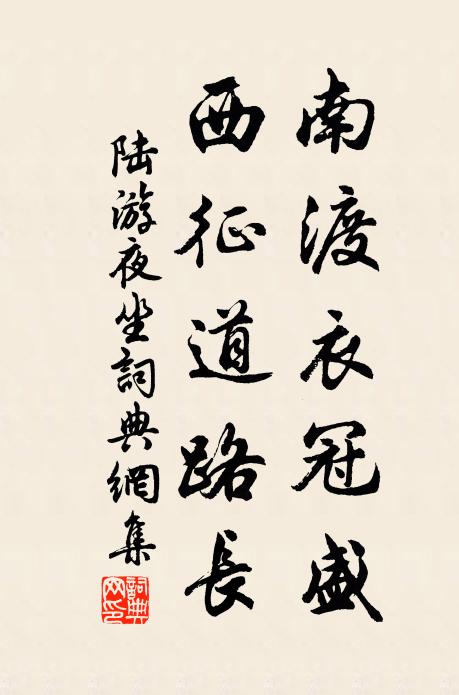 南渡衣冠盛
西征道路長
陆游夜坐詞典網集
詞典网印